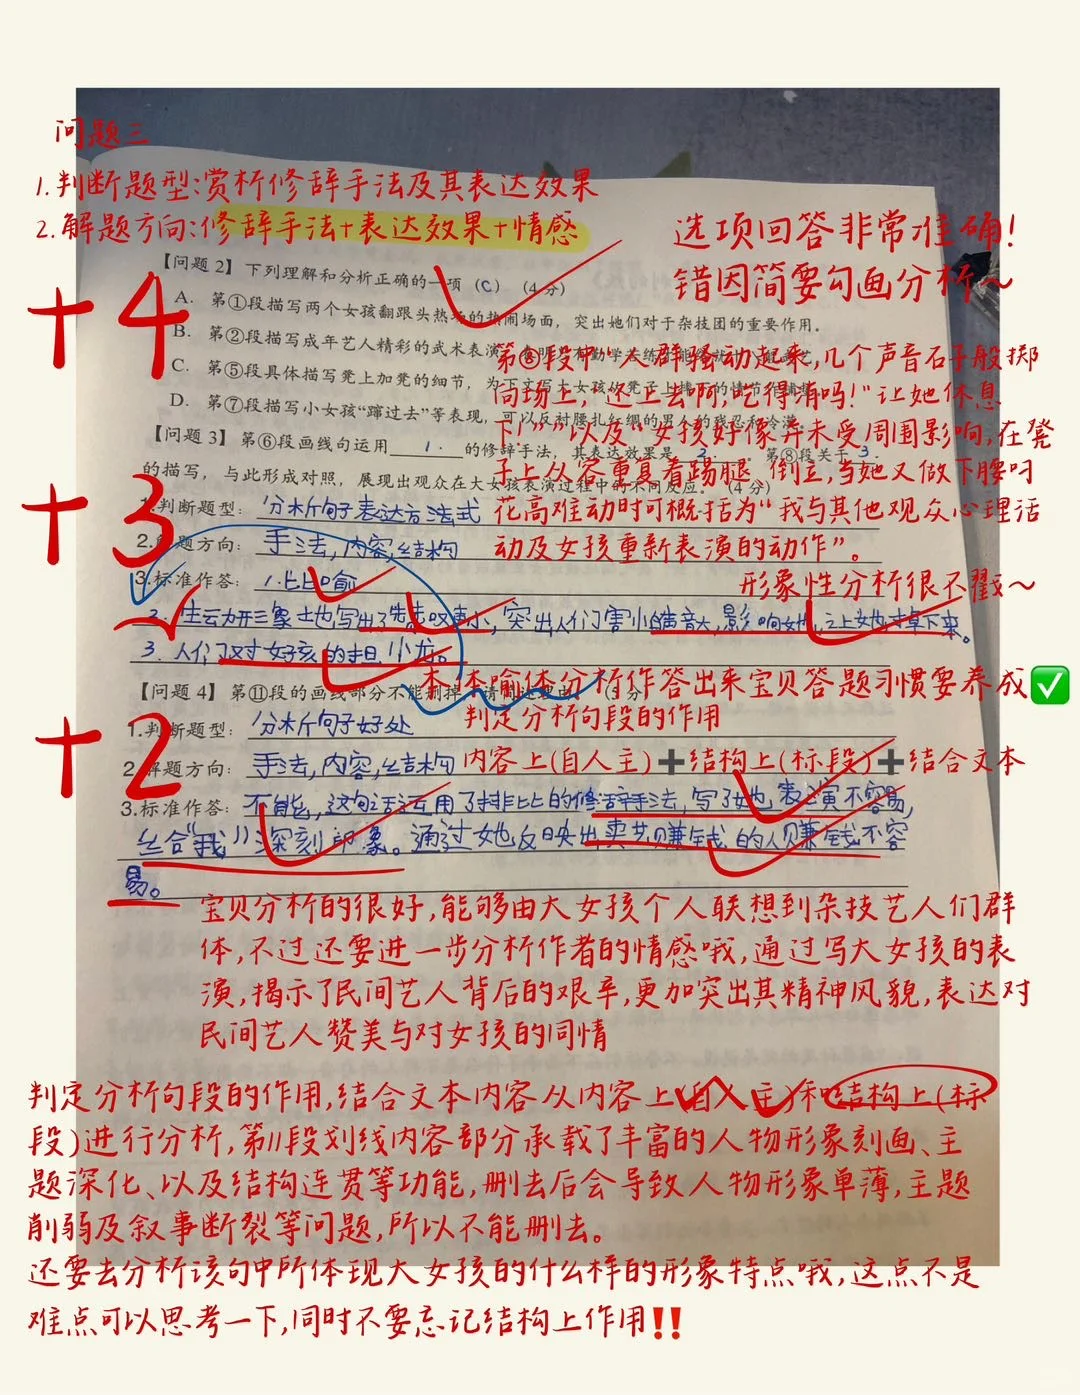 问题三
1.判断题型:赏析修辞手法及其表达效果
2.解题方向:修辞手法+表达效果+情感
选项回答非常准确!
错因简要勾画分析~
【问题 2】下列理解和分析正确的一项（C）（4分）
+4
A. 第①段描写两个女孩翻跟头热场的热闹场面，突出她们对于杂技团的重要作用。
B. 第②段描写成年艺人精彩的武术表演
C. 第⑤段具体描写凳上加凳的细节，为下文写大女孩从凳子上摔下的情节作铺垫。
D. 第⑦段描写小女孩“蹿过去”等表现，可以反衬腰扎红绸的男人的残忍和冷漠。
第⑧段中“人群骚动起来,几个声音石子般掷
向场上,“还上去啊,吃得消吗!”让她休息
下!”“以及“女孩好像并未受周围影响,在凳
子上从容重复着踢腿、倒立,当她又做下腰叼
花高难动时可概括为“我与其他观众心理活
动及女孩重新表演的动作”。
【问题 3】第⑥段画线句运用 1. 的修辞手法，其表达效果是 2. 。第⑧段关于 3.
的描写，与此形成对照，展现出观众在大女孩表演过程中的不同反应。（4分）
+3
1.判断题型: 分析句子表达方法式
2.解题方向: 手法,内容,结构
3.标准作答: 1.比喻
形象性分析很不戳~
2.生动形象地写出了 突出人们害 影响她,让她才掉下来。
3.人们对女孩的担
本体喻体分析作答出来宝贝答题习惯要养成✅
【问题 4】第⑪段的画线部分不能删掉，请简述理由。（5分）
+2
1.判断题型: 分析句子好处
判定分析句段的作用
2.解题方向: 手法,内容,结构
内容上(自人主)➕结构上(标段)➕结合文本
3.标准作答: 不能,这句话运用了排比的修辞手法,写了她,表演不容易,
给“我”深刻印象。通过她反映出卖艺赚钱的人赚钱不容
易。
宝贝分析的很好,能够由大女孩个人联想到杂技艺人们群
体,不过还要进一步分析作者的情感哦,通过写大女孩的表
演,揭示了民间艺人背后的艰辛,更加突出其精神风貌,表达对
民间艺人赞美与对女孩的同情
判定分析句段的作用,结合文本内容从内容上(自人主)和结构上(标
段)进行分析,第11段划线内容部分承载了丰富的人物形象刻画、主
题深化、以及结构连贯等功能,删去后会导致人物形象单薄,主题
削弱及叙事断裂等问题,所以不能删去。
还要去分析该句中所体现大女孩的什么样的形象特点哦,这点不是
难点可以思考一下,同时不要忘记结构上作用‼️